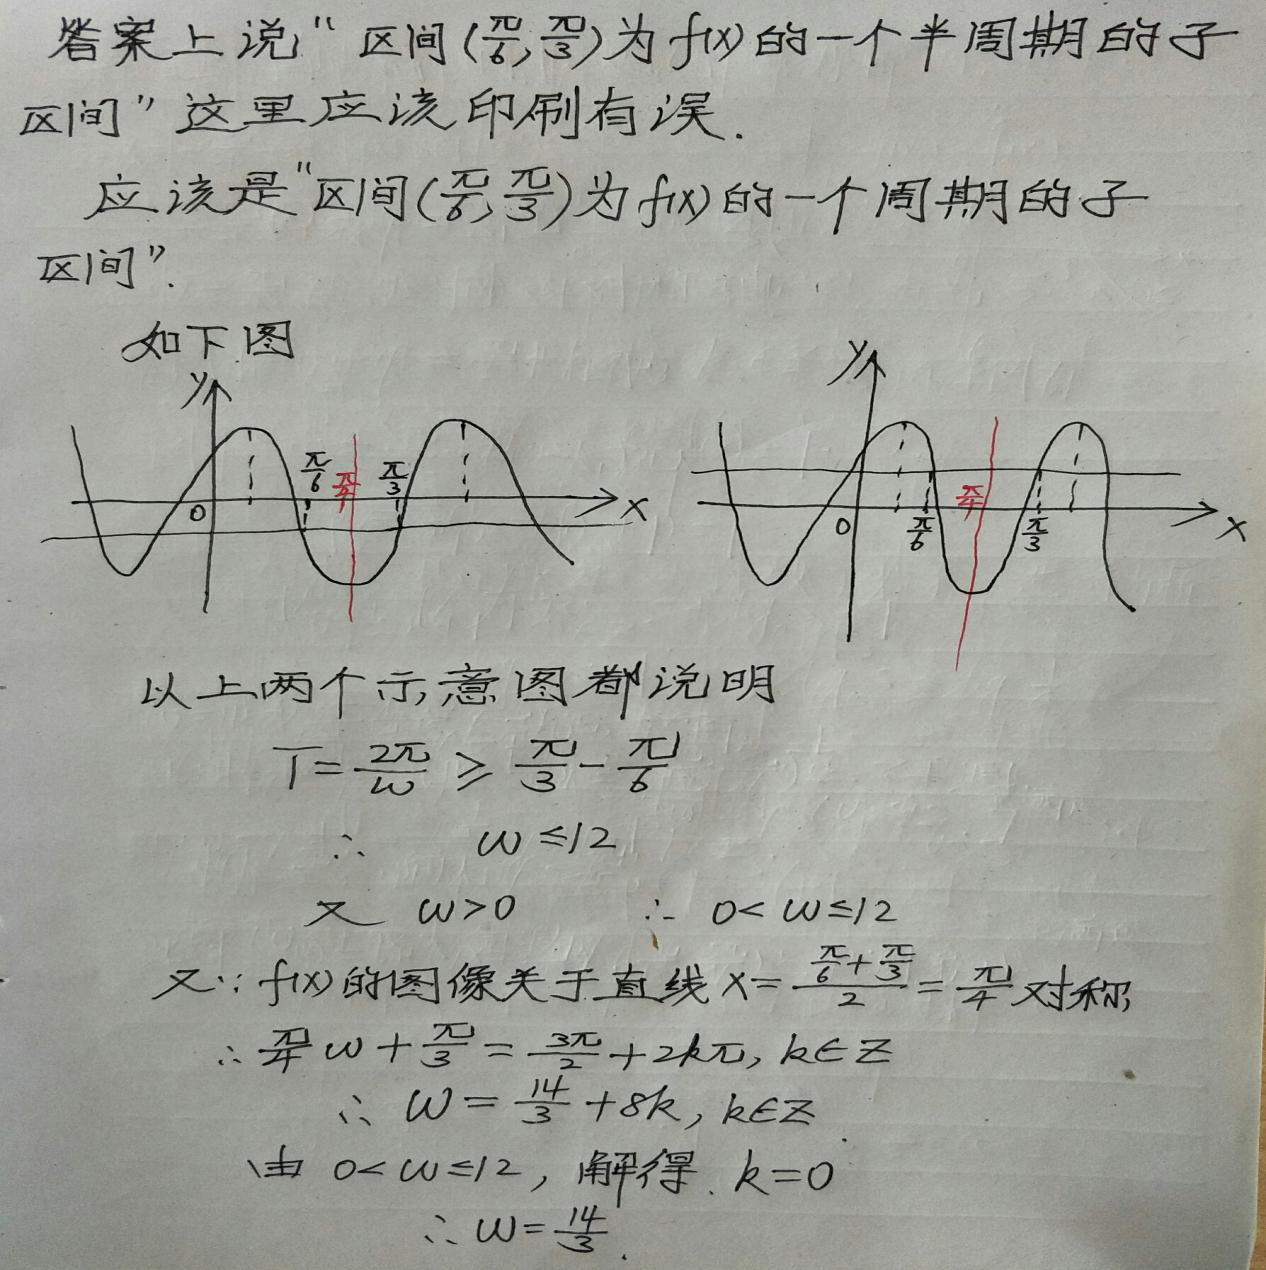 答案上说“区间(π/6,π/3)为f(x)的一个半周期的子
区间”这里应该印刷有误.
应该是“区间(π/6,π/3)为f(x)的一个周期的子
区间”.
如下图
y
π/6 π/4 π/3
0 x
y
π/4
0 π/6 π/3 x
以上两个示意图都说明
T=2π/ω ≥ π/3-π/6
∴ ω≤12
又 ω>0 ∴ 0<ω≤12
又∵f(x)的图像关于直线x=(π/6+π/3)/2=π/4对称
∴π/4ω+π/3=3π/2+2kπ, k∈Z
∴ ω=14/3+8k, k∈Z
由 0<ω≤12, 解得. k=0
∴ω=14/3.